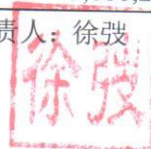 责人：徐弢
徐弢